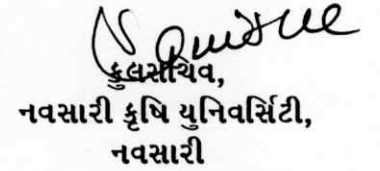 કુલસચિવ,
નવસારી કૃષિ યુનિવર્સિટી,
નવસારી